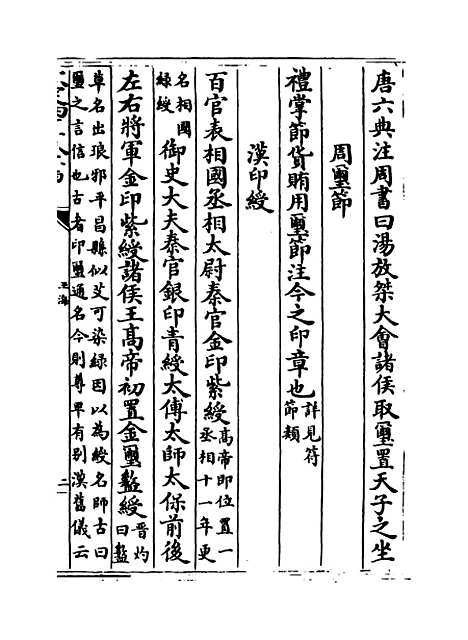 唐六典注周書曰湯放桀大會諸侯取璽置天子之坐
周璽節
禮掌節貨賄用璽節注今之印章也詳見符節類
漢印綬
百官表相國丞相太尉秦官金印紫綬高帝即位置一丞相十一年更
名相國緑綬御史大夫秦官銀印青綬太傅太師太保前後
左右將軍金印紫綬諸侯王髙帝初置金璽盭綬晋灼曰盭
草名出琅邪平昌縣似艾可染緑因以為綬名師古曰
璽之言信也古者印璽通名今則尊卑有别漢舊儀云
玉海
二